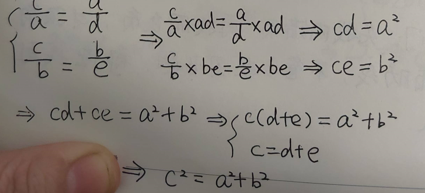 c/a = a/d ⇒ c/a × ad = a/d × ad ⇒ cd = a²
c/b = b/e c/b × be = b/e × be ⇒ ce = b²
⇒ cd + ce = a² + b² ⇒ { c(d+e) = a² + b²
c = d + e
⇒ c² = a² + b²